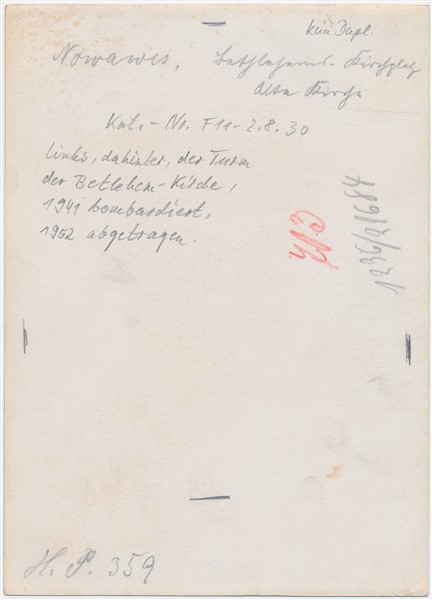 kein Dupl.
Nowawes, Bethlehem-Kirchplatz
Alte Kirche
Kat.-Nr. F11-2.8.30
links, dahinter, der Turm
der Betlehem-Kirche,
1941 bombardiert,
1952 abgetragen.
1236/21684
H. P. 359